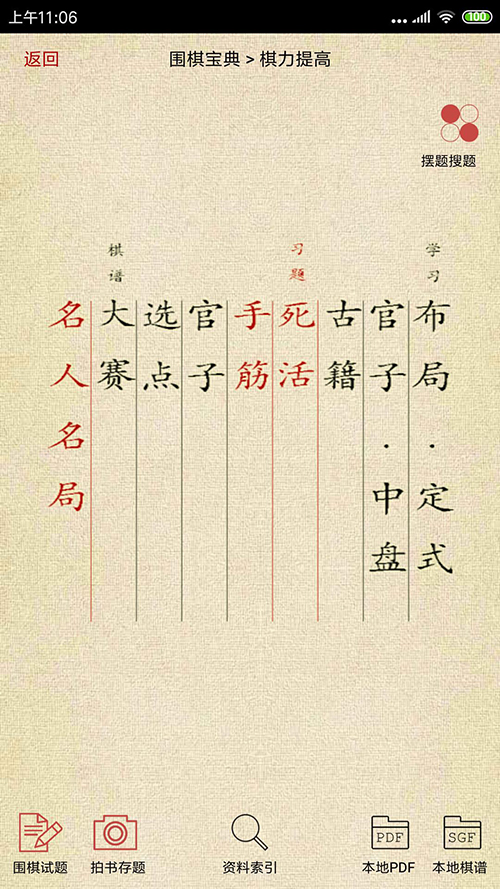 上午11:06
100
返回
围棋宝典 > 棋力提高
摆题搜题
学习
布局·定式
官子·中盘
古籍
习题
死活
手筋
官子
选点
棋谱
大赛
名人名局
围棋试题
拍书存题
资料索引
PDF
本地PDF
SGF
本地棋谱